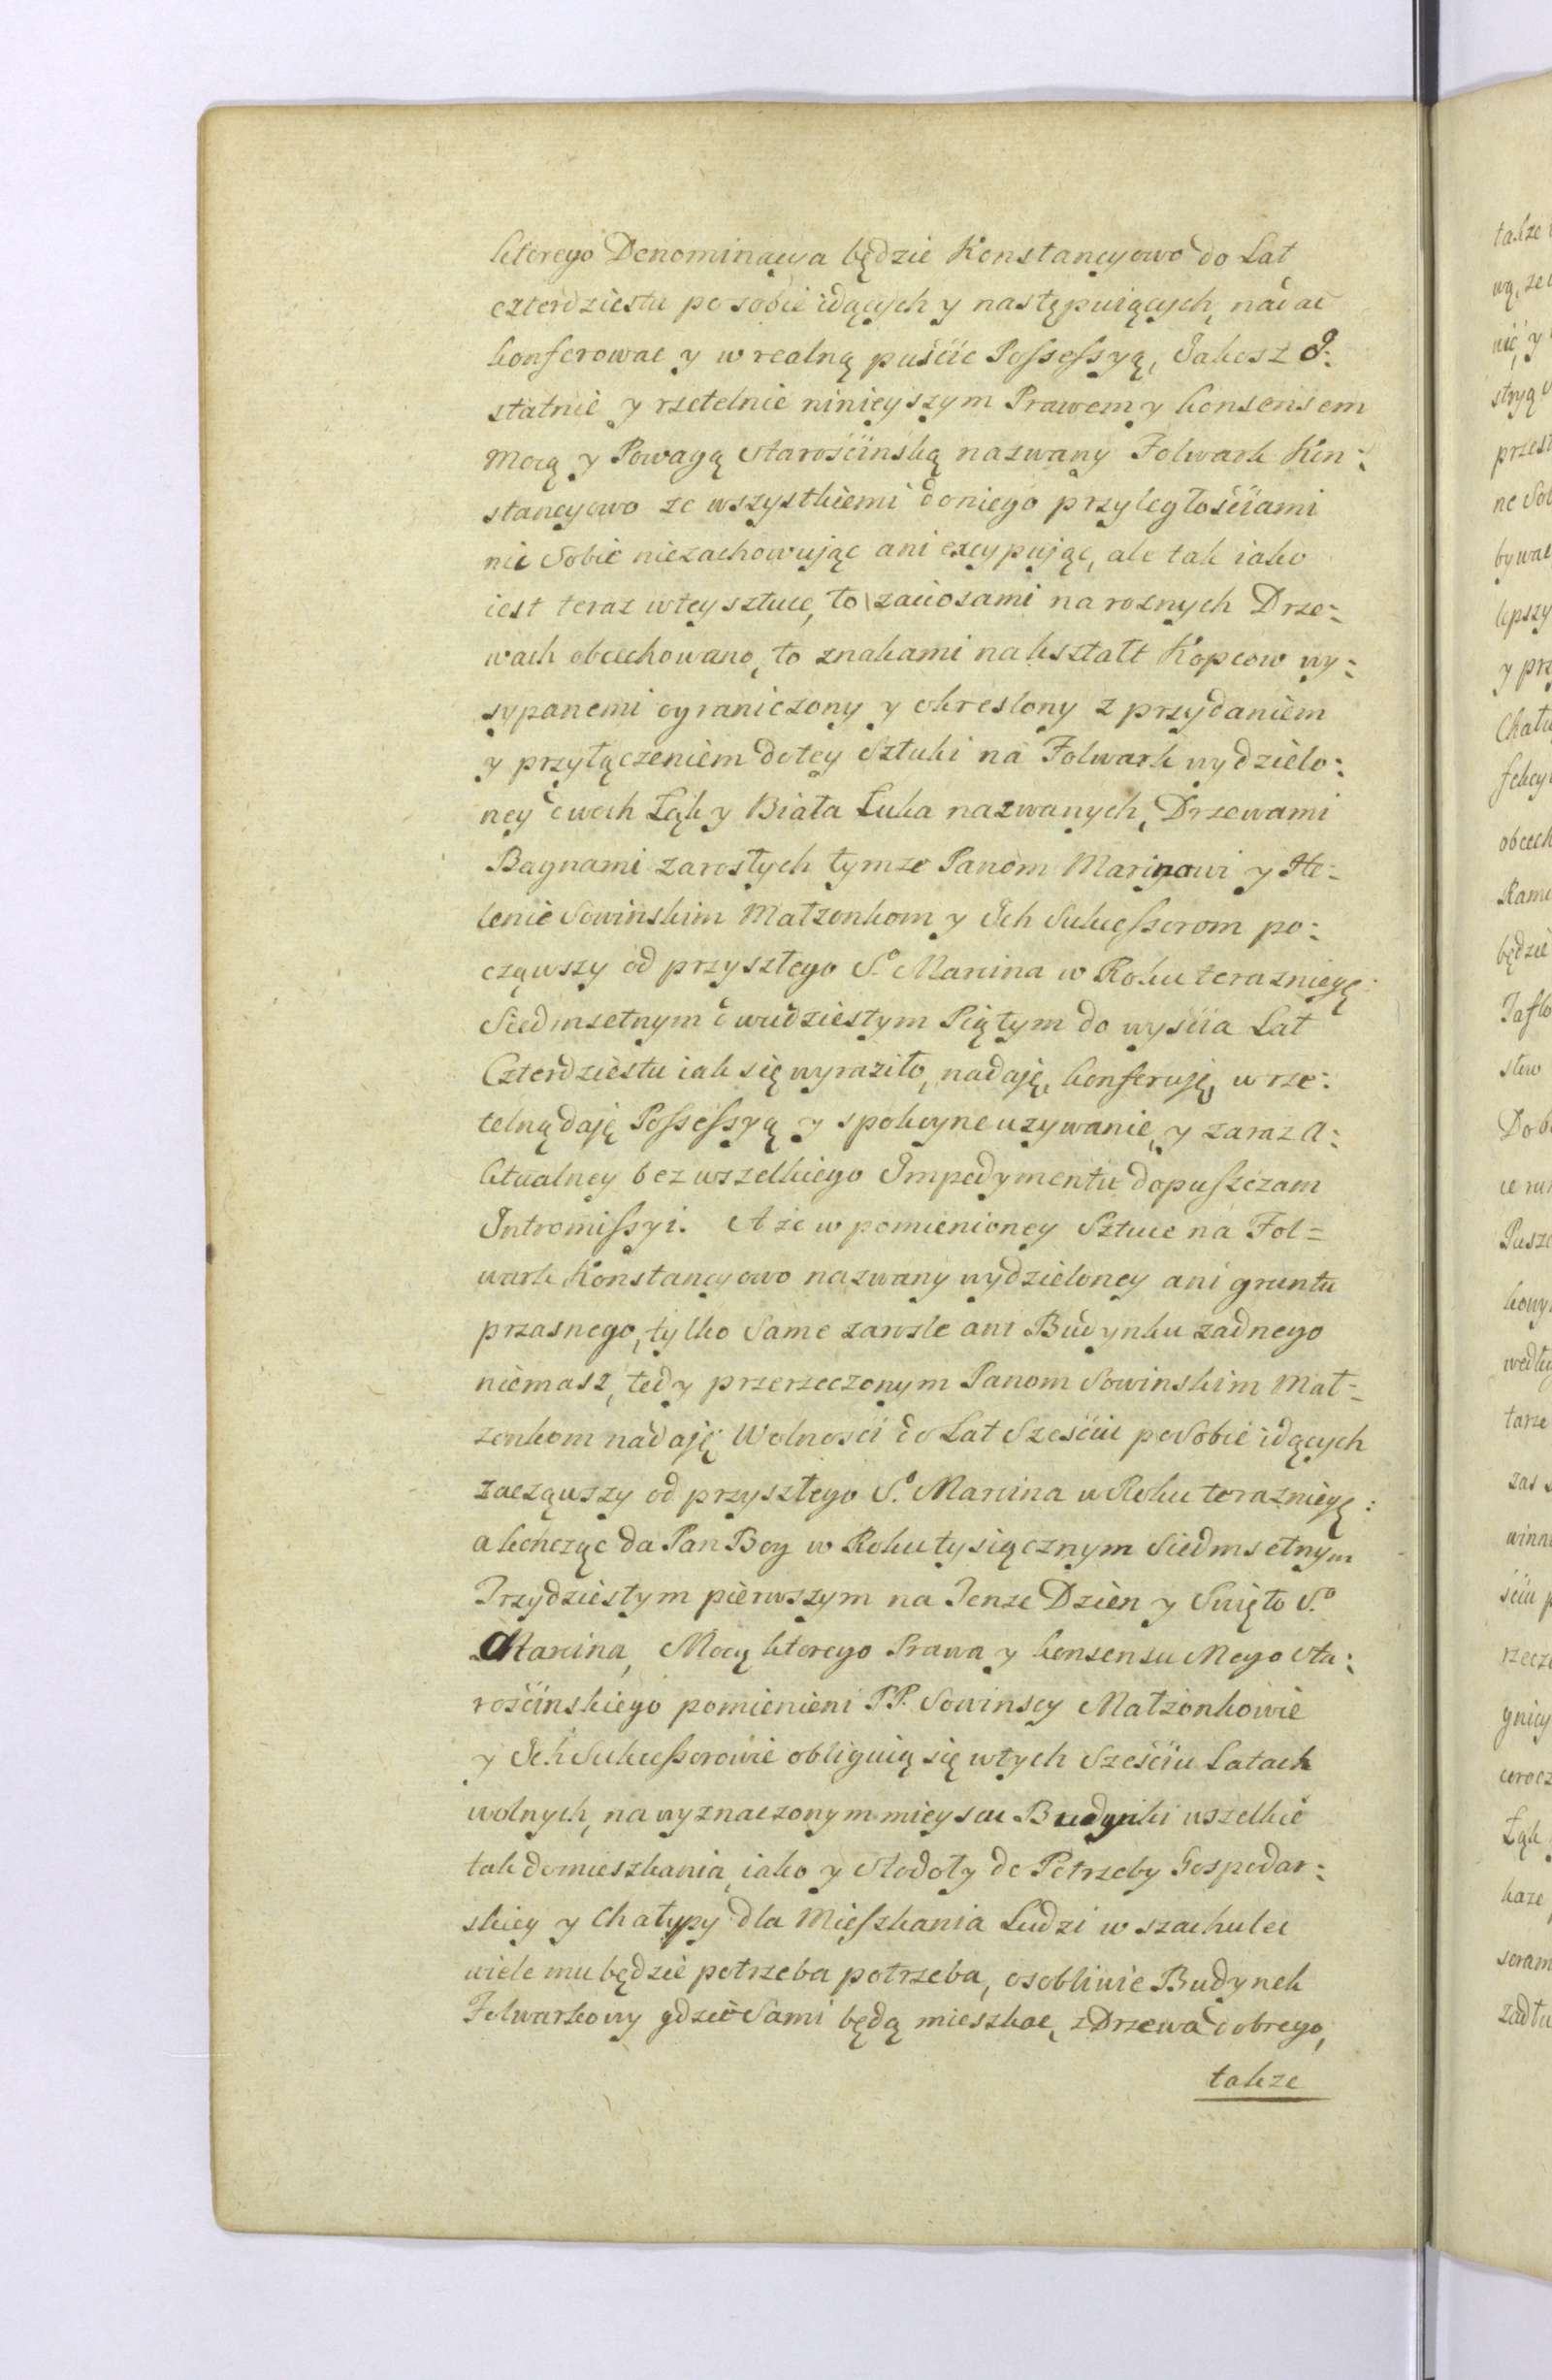 ktorego Denominacya będzie Konstancyowo do Lat
czterdziestu po sobie idących y następuiących, nadac
konferowac y w realną puśćic Possessyą, Jakosz J:
statnie y rzetelnie ninieyszym Prawem y konsensem
Mocą y Powagą Starośćinską nazwany Folwark Kon:
stancyowo ze wszystkiemi doniego przyległośćiami
nic Sobie niezachowując ani excypując, ale tak iako
iest teraz wtey sztuce, to zaciosami na roznych Drze:
wach obcechowano, to znakami nakształt Kopcow wy:
sypanemi ograniczony y okreslony z przydaniem
y przyłączeniem dotey Sztuki na Folwark wydzielo:
ney dwoch Łąk y Biała Łuka nazwanych, Drzewami
Bagnami zarosłych tymze Panom Marinowi y He:
lenie Sowinskim Matzonkom y Ich Sukcessorom po:
cząwszy od przyszłego S.º Marcina w Roku teraznieyę:
Siedmsetnym dwudziestym Piątym do wyśćia Lat
Czterdziestu iak się wyraziło, nadaję, konferuję, w rze:
telną daję Possessyą y spokoyne uzywanie, y zaraz A:
ktualney bez wszelkiego Impedymentu dopuszczam
Intromissyi. A ze w pomienioney Sztuce na Fol=
wark Konstancyowo nazwany wydzieloney ani gruntu
przasnego, tylko Same zarosle ani Budynku zadnego
niemasz, tedy przerzeczonym Panom Sowinskim Mat=
zonkom nadaję Wolnosci do Lat Sześćiu po Sobie idących
zacząwszy od przyszłego S.º Marcina w Roku teraznieyę:
akończąc da Pan Bog w Roku tysiącznym Siedmsetnym
Trzydziestym pierwszym na Tenze Dzien y Swięto S.º
Marcina, Mocą ktorego Prawa y konsensu Mego Sta:
rośćinskiego pomienieni PP. Sowinscy Małżonkowie
y Ich Sukcessorowie obliguią się wtych Sześćiu Latach
wolnych, na wyznaczonym mieyscu Budynki wszelkie
tak do mieszkania, iako y Stodoły do Potrzeby Gospodar:
skiey y Chałupy dla Mieszkania Ludzi w szachulec
wiele mu będzie potrzeba potrzeba, osobliwie Budynek
Folwarkowy gdzie Sami będą mieszkac, z Drzewa dobrego,
takze